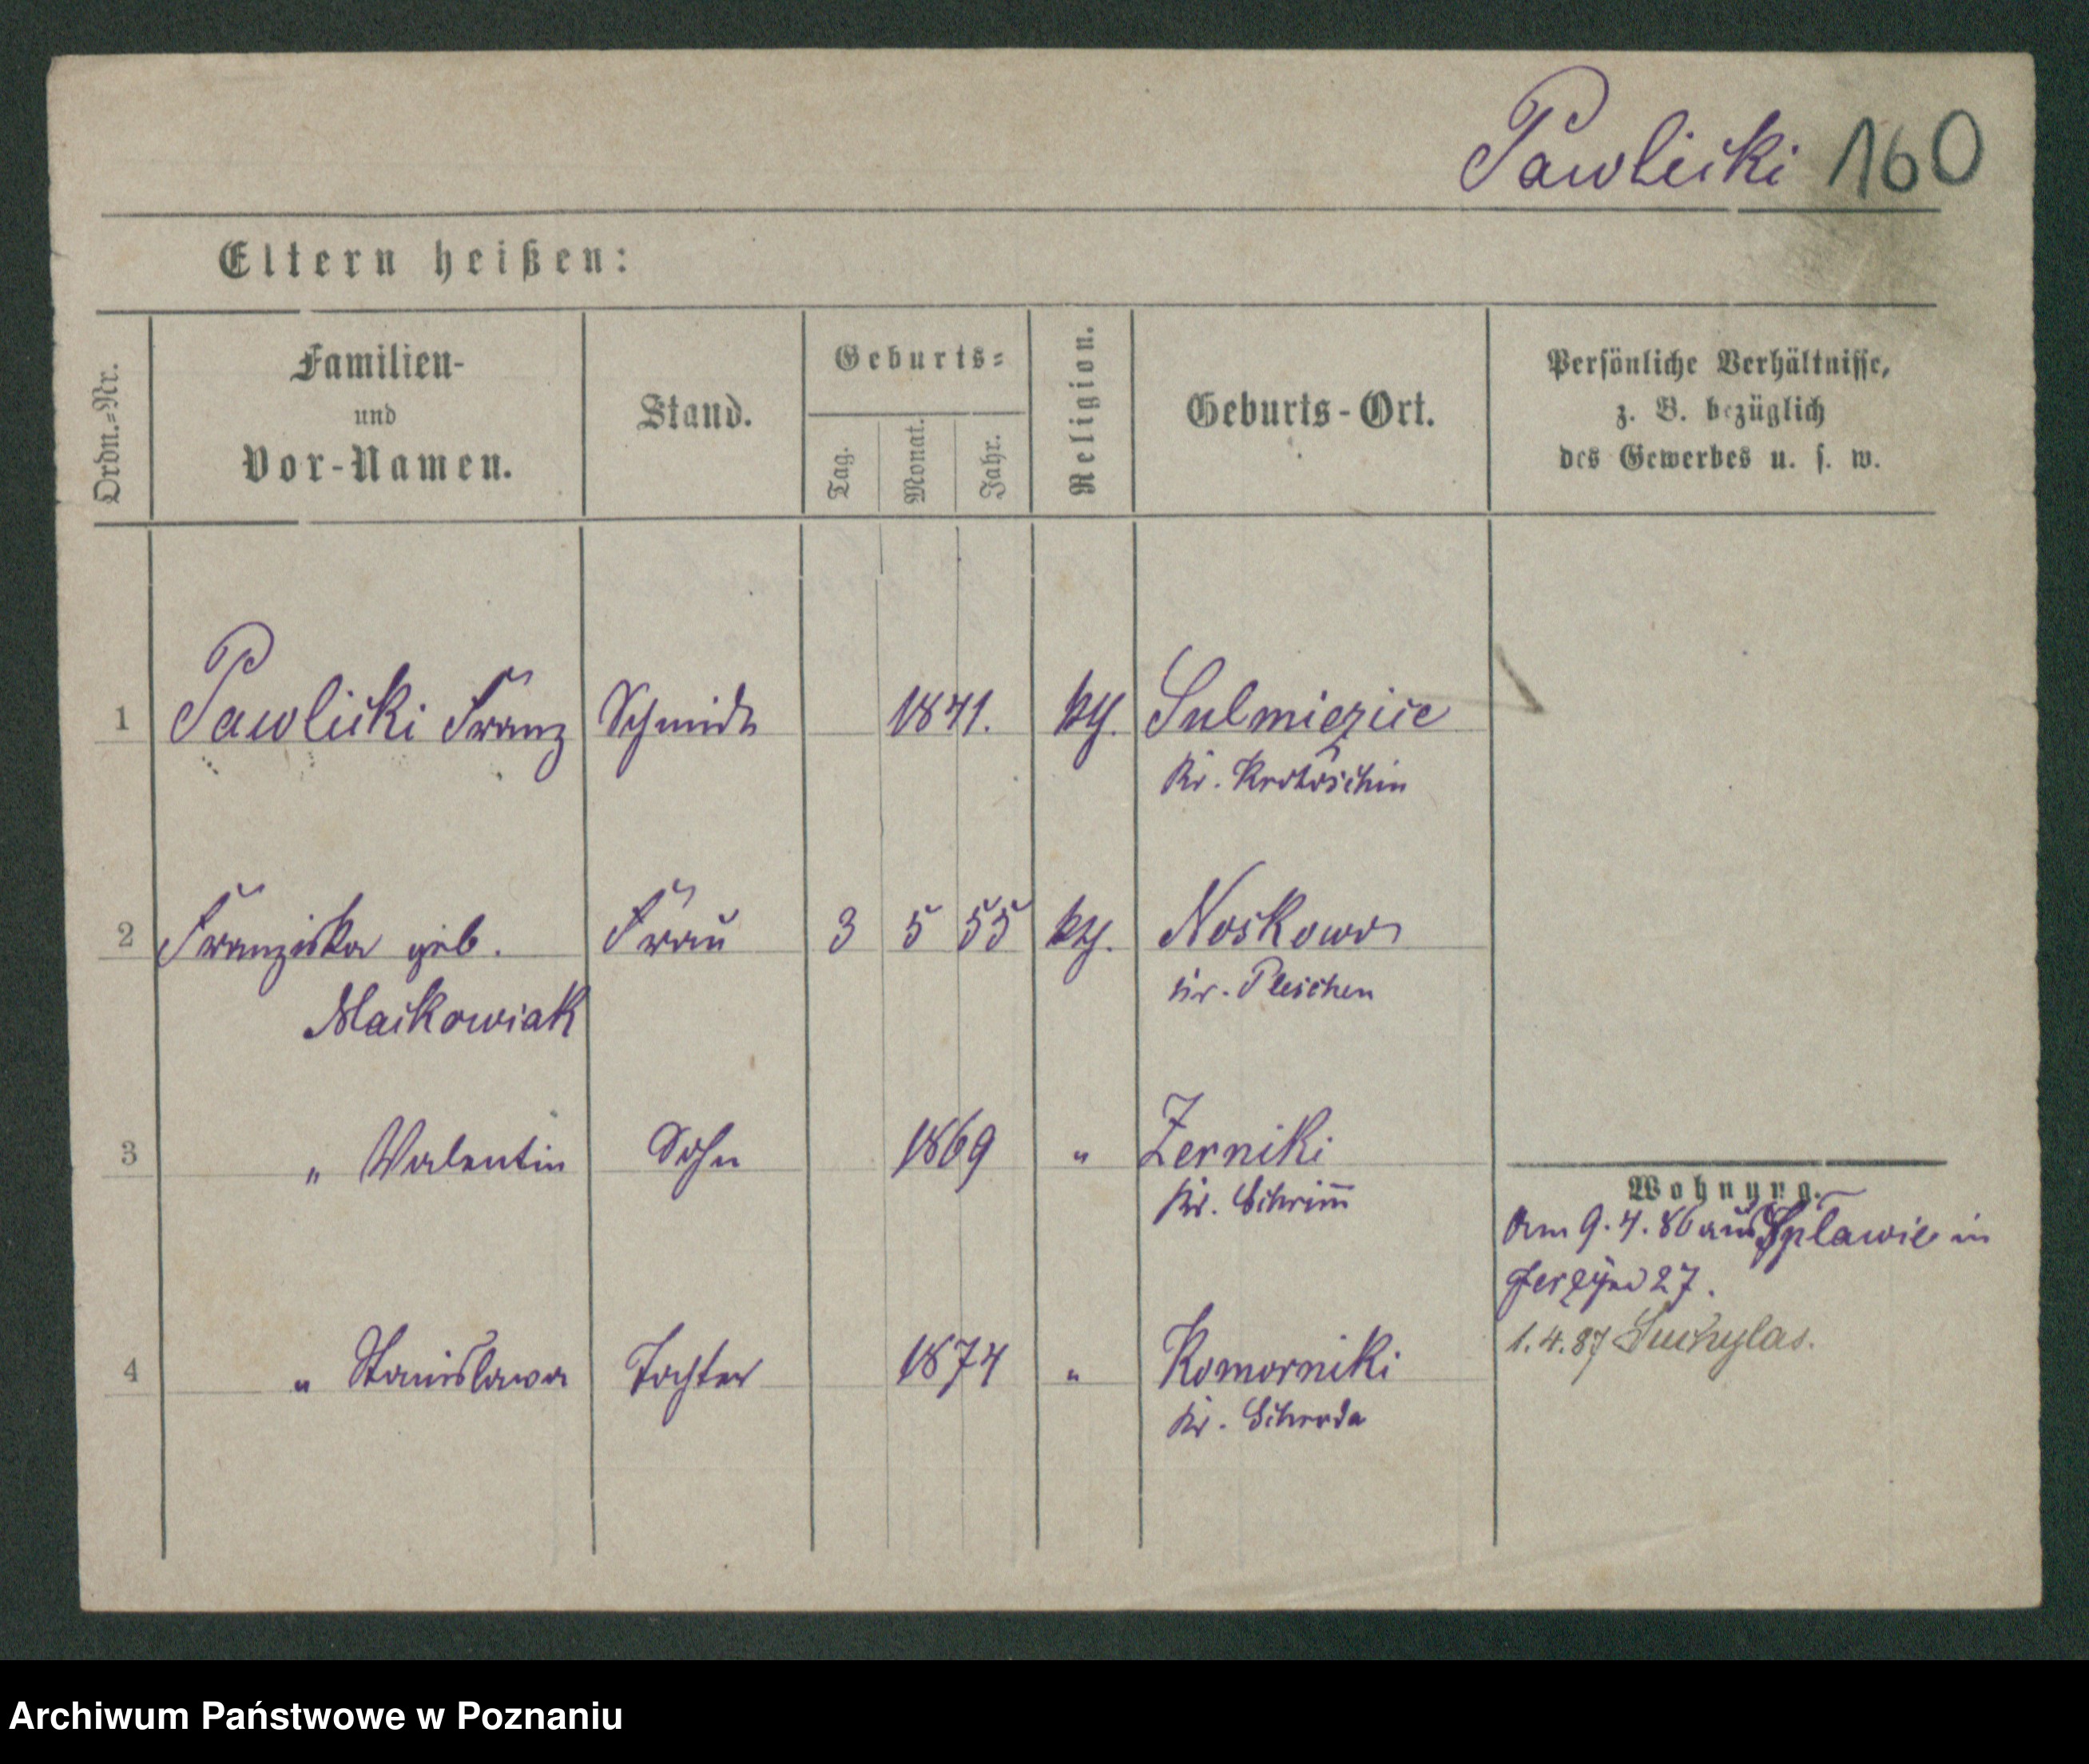 Pawlicki 160
Eltern heißen:
Ordn.=Nr.
Familien-
und
Vor-Namen.
Stand.
Geburts=
Tag.
Monat.
Jahr.
Religion.
Geburts-Ort.
Persönliche Verhältnisse,
z. B. bezüglich
des Gewerbes u. s. w.
1 Pawlicki Franz Schmidt 1841. kth. Sulmierzice
Kr. Krotoschin
2 Franziska geb. Frau 3 5 55 kth. Noskowo
Maćkowiak Kr. Pleschen
3 " Valentin Sohn 1869 " Zerniki
Kr. Schrim̅
Wohnung.
Am 9.4.86 aus Splawie in
Jerzyce 27.
1.4.87 Suchylas.
4 " Stanislawa Tochter 1874 " Komorniki
Kr. Schroda
Archiwum Państwowe w Poznaniu